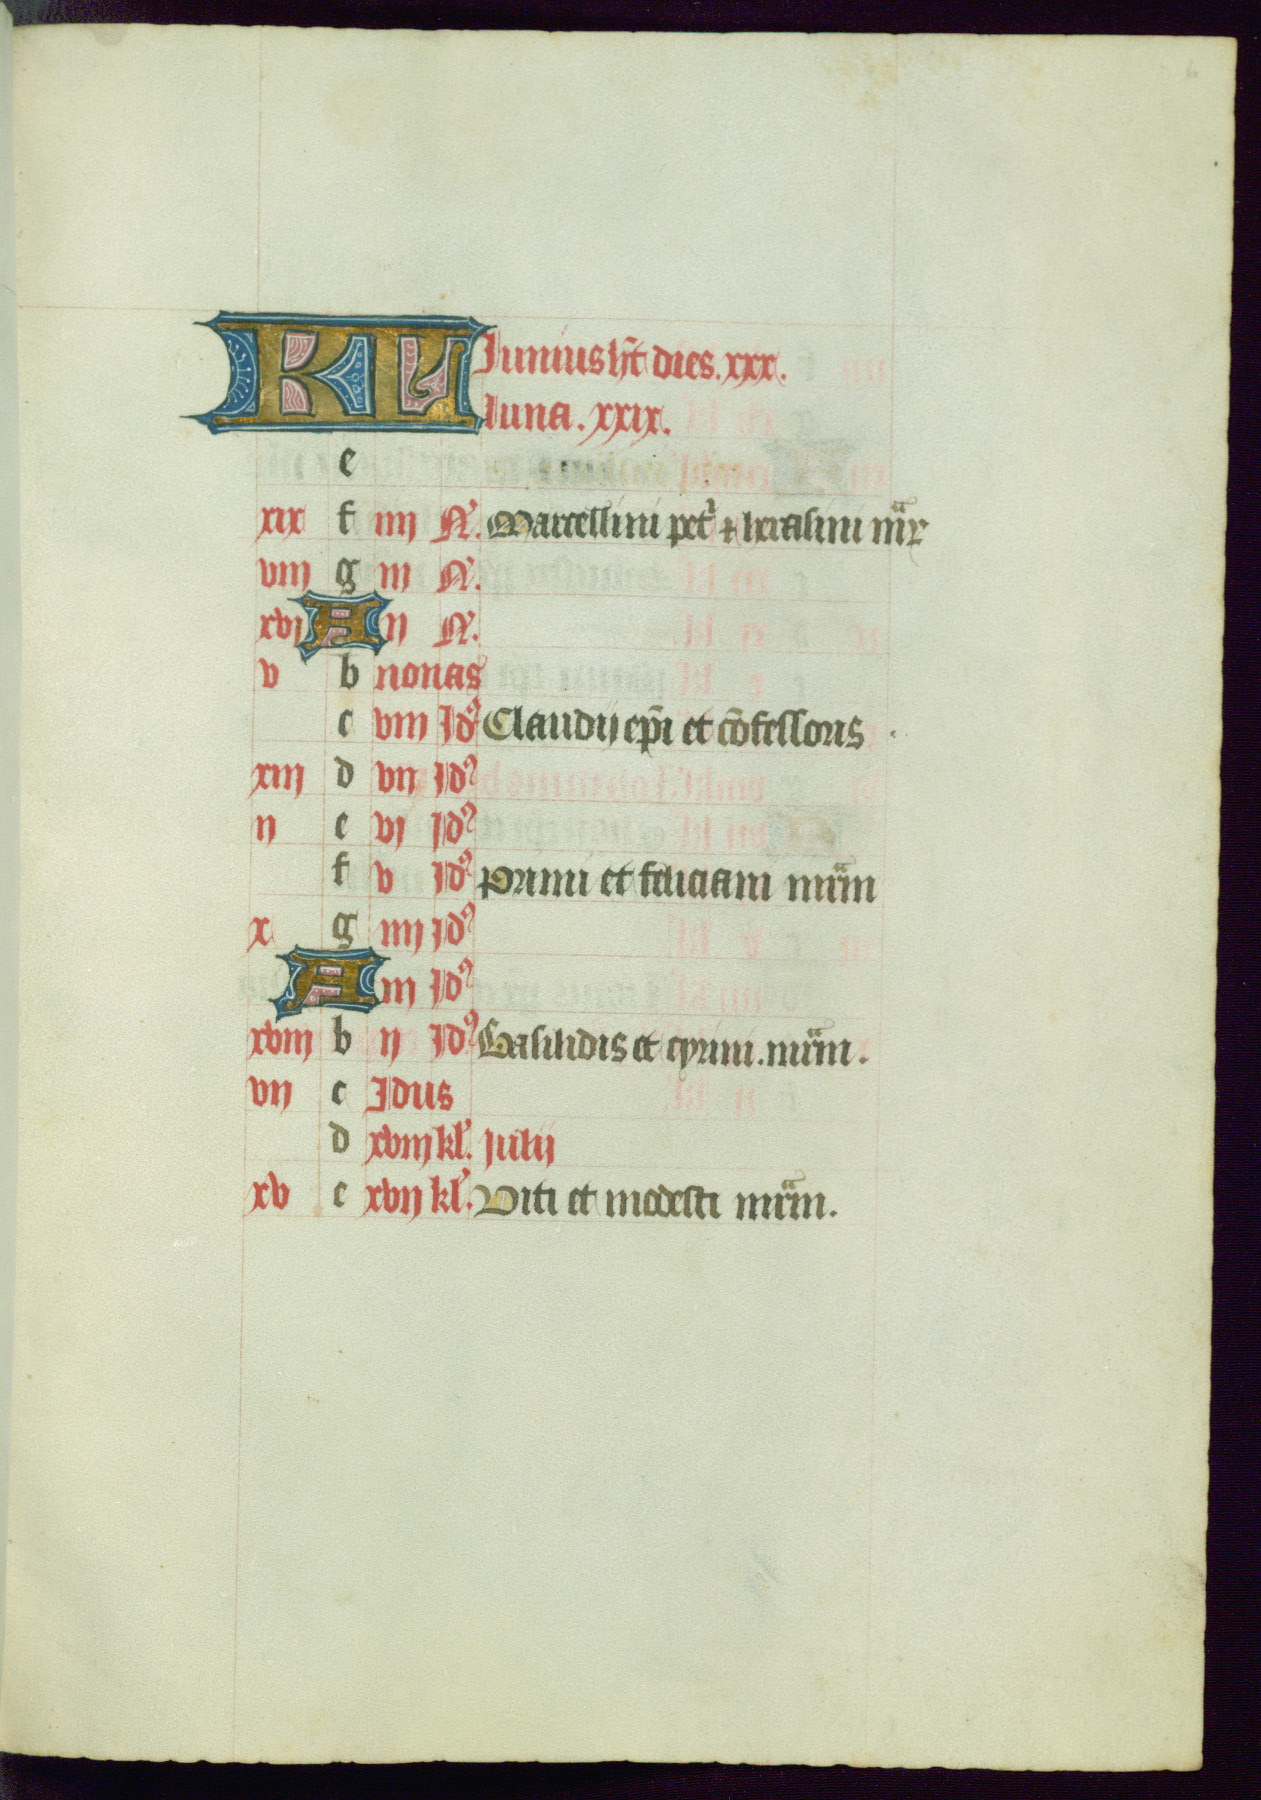 KL Junius h̄t dies. xxx.
luna. xxix.
e
xix f iiij N̄. Marcellini pet' ⁊ herasini m̄r̄
viij g iij N̄.
xvj A ij N̄.
v b nonas
c viij Jd' Claudij ep̄i et cōfessoris
xiij d vij Jd'
ij e vj Jd'
f v Jd' Primi et feliciani mr̄m
x g iiij Jd'
A iij Jd'
xviij b ij Jd' Basilidis et cyrini. mr̄m.
vij c Idus
d xviij kl'. julij
xv e xvij kl'. Viti et modesti mr̄m.